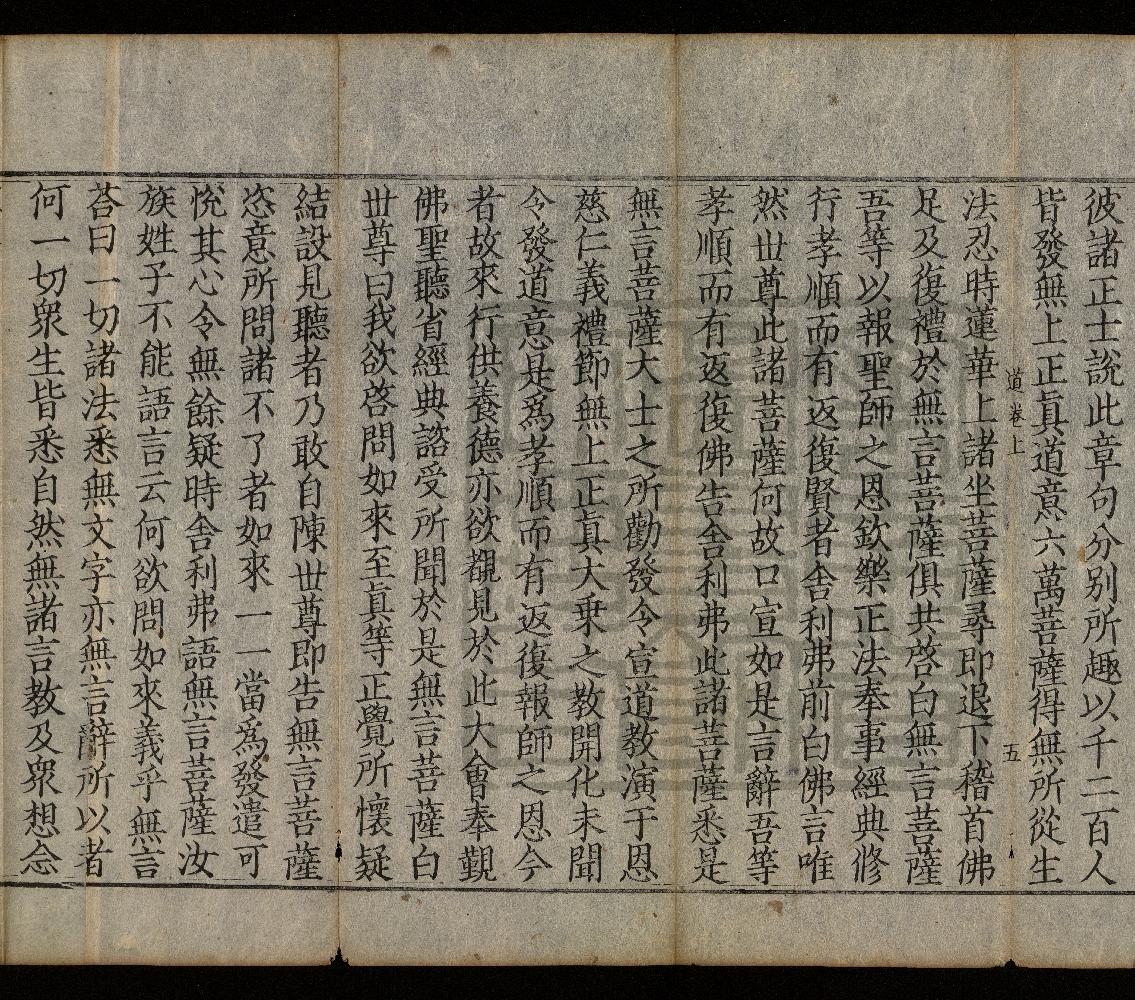 彼諸正士說此章句分别所趣以千二百人
皆發無上正真道意六萬菩薩得無所從生
道卷上 五
法忍時蓮華上諸坐菩薩尋即退下稽首佛
足及復禮於無言菩薩俱共啓白無言菩薩
吾等以報聖師之恩欽樂正法奉事經典修
行孝順而有返復賢者舍利弗前白佛言唯
然世尊此諸菩薩何故口宣如是言辭吾等
孝順而有返復佛告舍利弗此諸菩薩悉是
無言菩薩大士之所勸發令宣道教演于恩
慈仁義禮節無上正真大乘之教開化未聞
令發道意是爲孝順而有返復報師之恩今
者故來行供養德亦欲覩見於此大會奉覲
佛聖聽省經典諮受所聞於是無言菩薩白
世尊曰我欲啓問如來至真等正覺所懷疑
結設見聽者乃敢自陳世尊即告無言菩薩
恣意所問諸不了者如來一一當爲發遣可
悅其心令無餘疑時舍利弗語無言菩薩汝
族姓子不能語言云何欲問如來義乎無言
荅曰一切諸法悉無文字亦無言辭所以者
何一切衆生皆悉自然無諸言教及衆想念